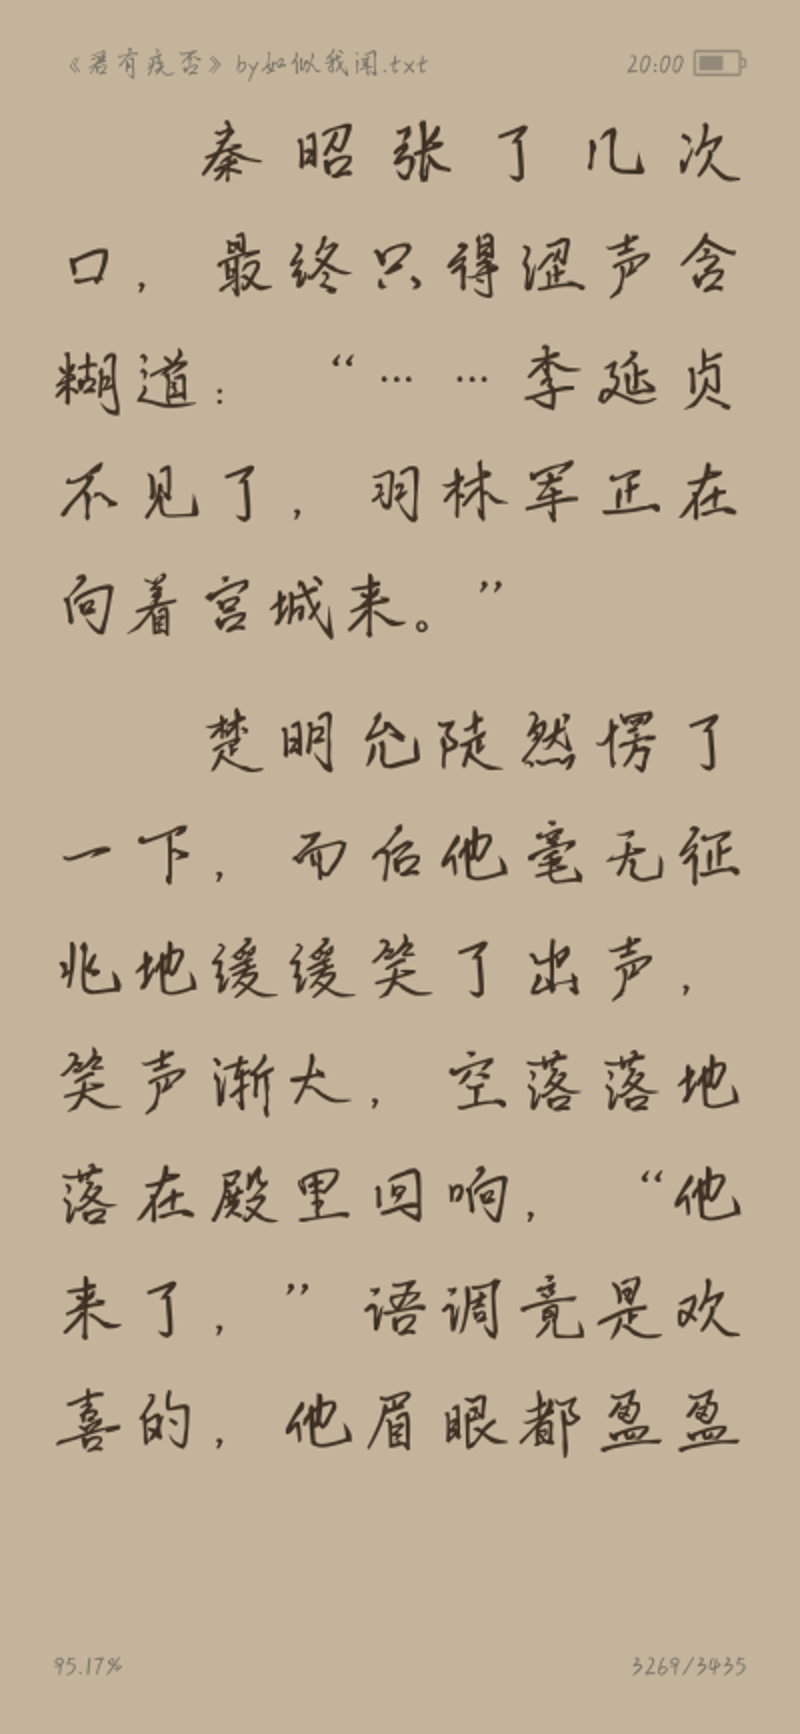 《君有疾否》by如似我闻.txt 20:00
秦昭张了几次
口，最终只得涩声含
糊道：“……李延贞
不见了，羽林军正在
向着宫城来。”
楚明允陡然愣了
一下，而后他毫无征
兆地缓缓笑了出声，
笑声渐大，空落落地
落在殿里回响，“他
来了，”语调竟是欢
喜的，他眉眼都盈盈
95.17% 3269/3435